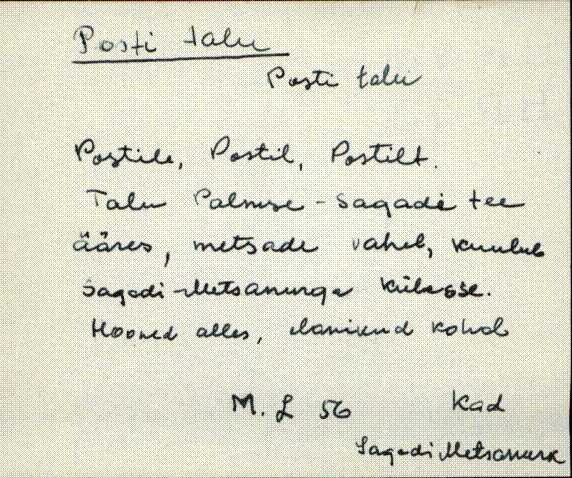 Posti talu
Posti talu
Postile, Postil, Postilt.
Talu Palmse - Sagadi tee
ääres, metsade vahel, kuulub
Sagadi-Metsanurga külasse.
Hooned alles, elanikud kohal
M. L 56 Kad
Sagadi Metsanurk